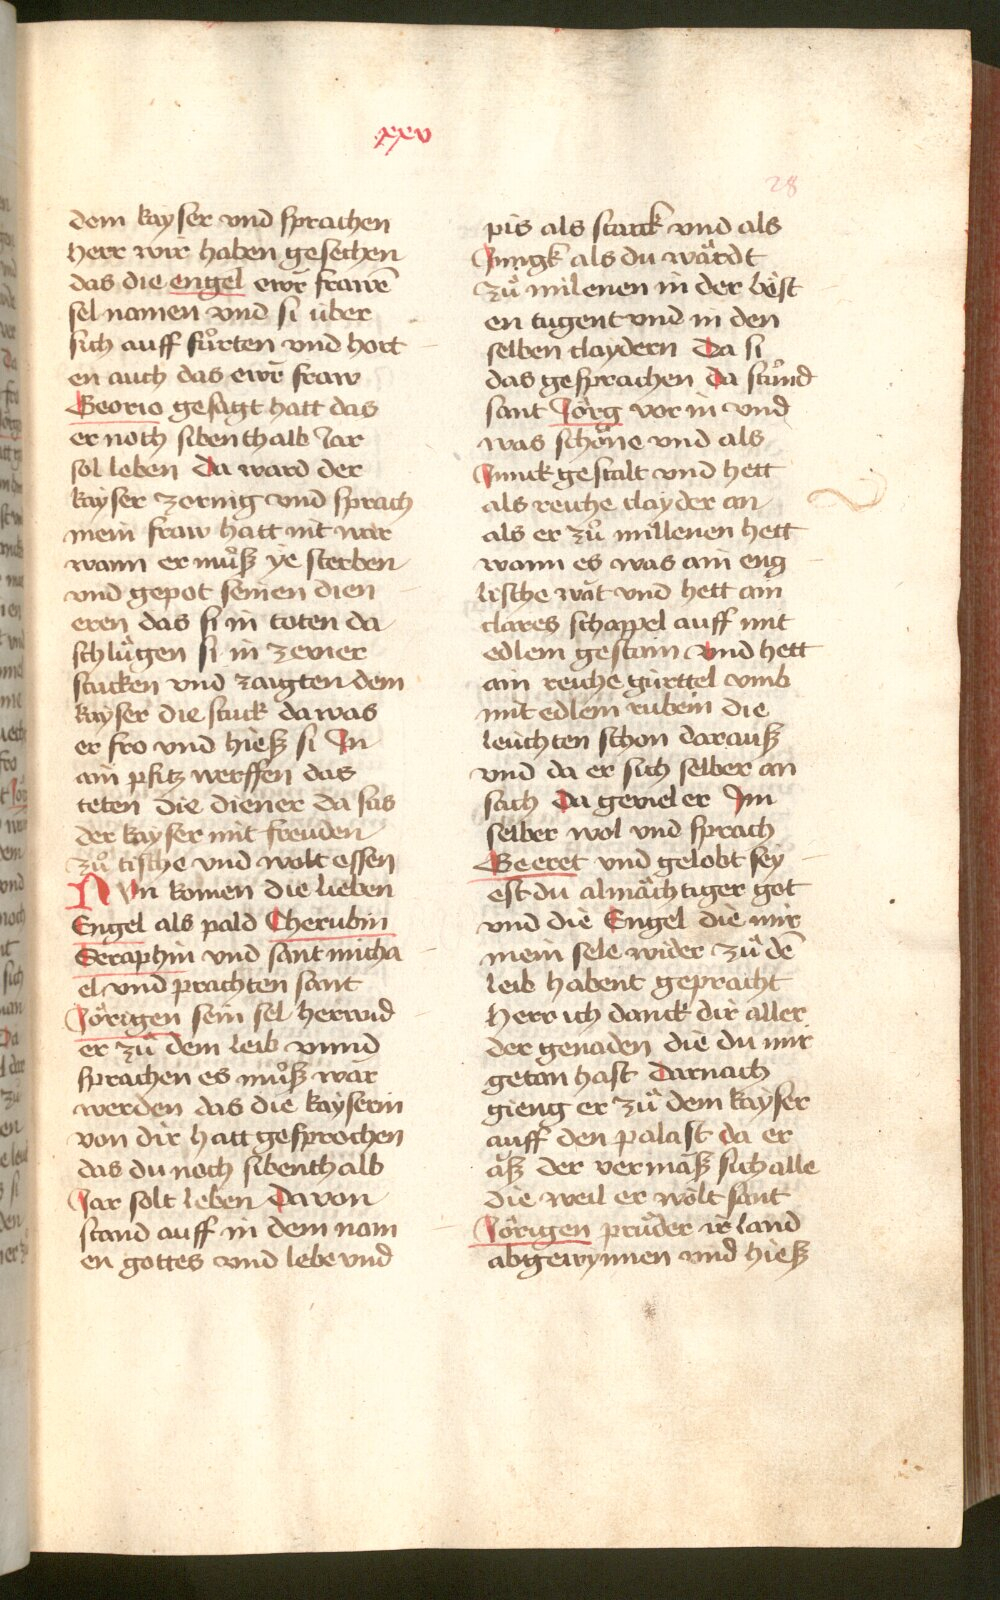 xxv
28
dem kayser vnd sprachen
herr wir haben gesechen
das die engel ewr̄ frawē
sel namen vnd si über
sich auff fuͦrten vnd hort
en auch das ewr̄ fraw
Georio gesagt hatt das
er noch sibenthalb Jar
sol leben Da ward der
kayser zornig vnd sprach
mein fraw hatt nit war
wann er muͦß ye sterben
vnd gepot seinen dien
eren das si in toten da
schluͦgen si in zevier
stucken vnd zaigten dem
kayser die stuck da was
er fro vnd hieß si In
ain pfitz werffen das
teten die diener da sas
der kayser mit freuden
zuͦ tische vnd wolt essen
NVn komen die lieben
Engel als pald Cherubin
Seraphin vnd sant micha
el vnd prachten sant
Jörigen sein sel herwid
er zuͦ dem leib vnnd
sprachen es muͦß war
werden das die kayserin
von dir hatt gesprochen
das du noch sibenthalb
Jar solt leben Davon
stand auff in dem nam
en gottes vnd lebe vnd
pis als starck vnd als
Jungk als du wärdt
zuͦ milenen in der best
en tugent vnd in den
selben claydern Da si
das gesprachen da stuͦnd
sant Jörg vor in vnd
was schöne vnd als
Junck gestalt vnd hett
als reiche clayder an
als er zuͦ millenen hett
wann es was ain eng
lische wät vnd hett ain
clares schappel auff mit
edlem gestain vnd hett
ain reiche gürttel vmb
mit edlem rubein die
leuchten schon darauß
vnd da er sich selber an
sach Da geviel er Im
selber wol vnd sprach
Geeret vnd gelobt sey
est du almächtiger got
vnd die Engel die mir
mein sele wider zuͦ dē
leib habent gepracht
herr ich danck dir aller
der genaden die du mir
getan hast Darnach
gieng er zuͦ dem kayser
auff den palast da er
äß der vermäß sich alle
die weil er wölt sant
Jörigen pruͦder ir land
abgewynnen vnd hieß